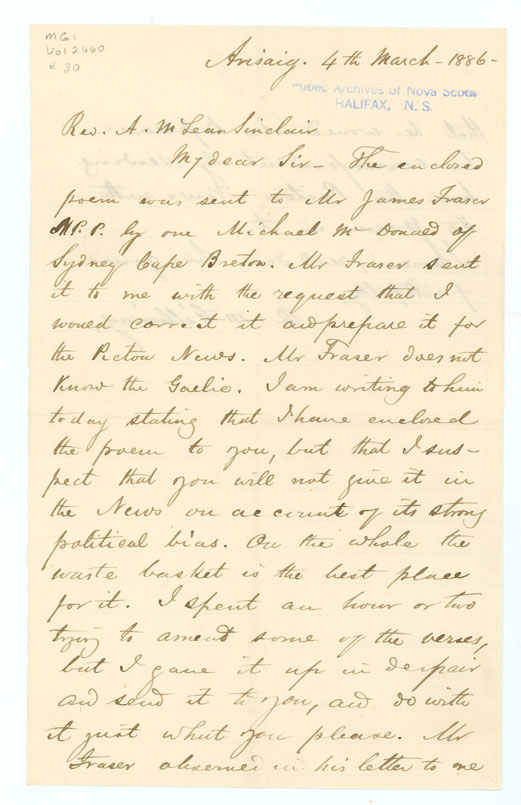 MG1
Vol 2660
# 30
Arisaig. 4th March - 1886 -
Public Archives of Nova Scotia
HALIFAX, N. S.
Rev. A. McLean Sinclair
My dear Sir - The enclosed
poem was sent to Mr James Fraser
M.P.P. by one Michael McDonald of
Sydney Cape Breton. Mr Fraser sent
it to me with the request that I
would correct it and prepare it for
the Pictou News. Mr Fraser does not
Know the Gaelic. I am writing to him
today stating that I have enclosed
the poem to you, but that I sus-
pect that you will not give it in
the News on account of its strong
political bias. On the whole the
waste basket is the best place
for it. I spent an hour or two
trying to amend some of the verses,
but I gave it up in despair
and send it to you, and do with
it just what you please. Mr
Fraser observed in his letter to me